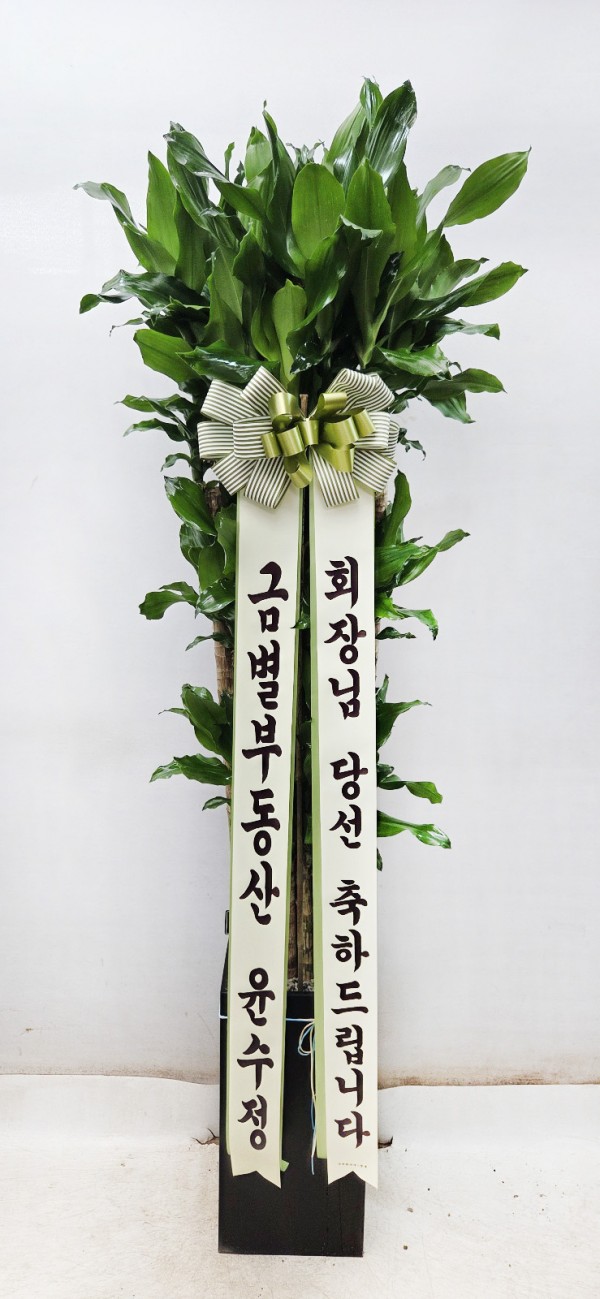 회장님 당선 축하드립니다
금별부동산 윤수정